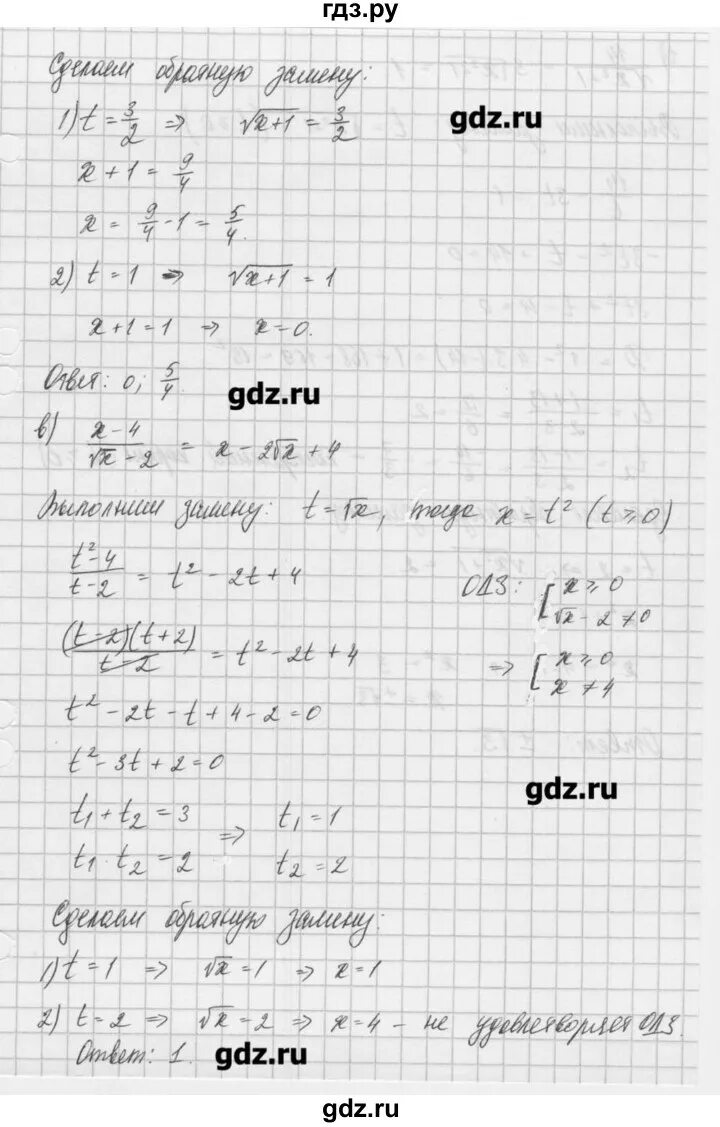 гдз.ру
Сделаем обратную замену:
1) t = 3/2 ⇒ √(x+1) = 3/2
gdz.ru
x + 1 = 9/4
x = 9/4 - 1 = 5/4.
2) t = 1 ⇒ √(x+1) = 1
x + 1 = 1 ⇒ x = 0.
Ответ: 0; 5/4.
gdz.ru
в) (x-4)/(√x - 2) = x - 2√x + 4
Выполним замену: t = √x, тогда x = t² (t ≥ 0)
(t²-4)/(t-2) = t² - 2t + 4
ОДЗ: [ x ≥ 0
√x - 2 ≠ 0
((t-2)(t+2))/(t-2) = t² - 2t + 4
⇒ [ x ≥ 0
x ≠ 4
t² - 2t - t + 4 - 2 = 0
t² - 3t + 2 = 0
gdz.ru
t₁ + t₂ = 3 ⇒ t₁ = 1
t₁ · t₂ = 2 t₂ = 2
Сделаем обратную замену:
1) t = 1 ⇒ √x = 1 ⇒ x = 1
2) t = 2 ⇒ √x = 2 ⇒ x = 4 - не удовлетворяет ОДЗ.
Ответ: 1.
gdz.ru
gdz.ru